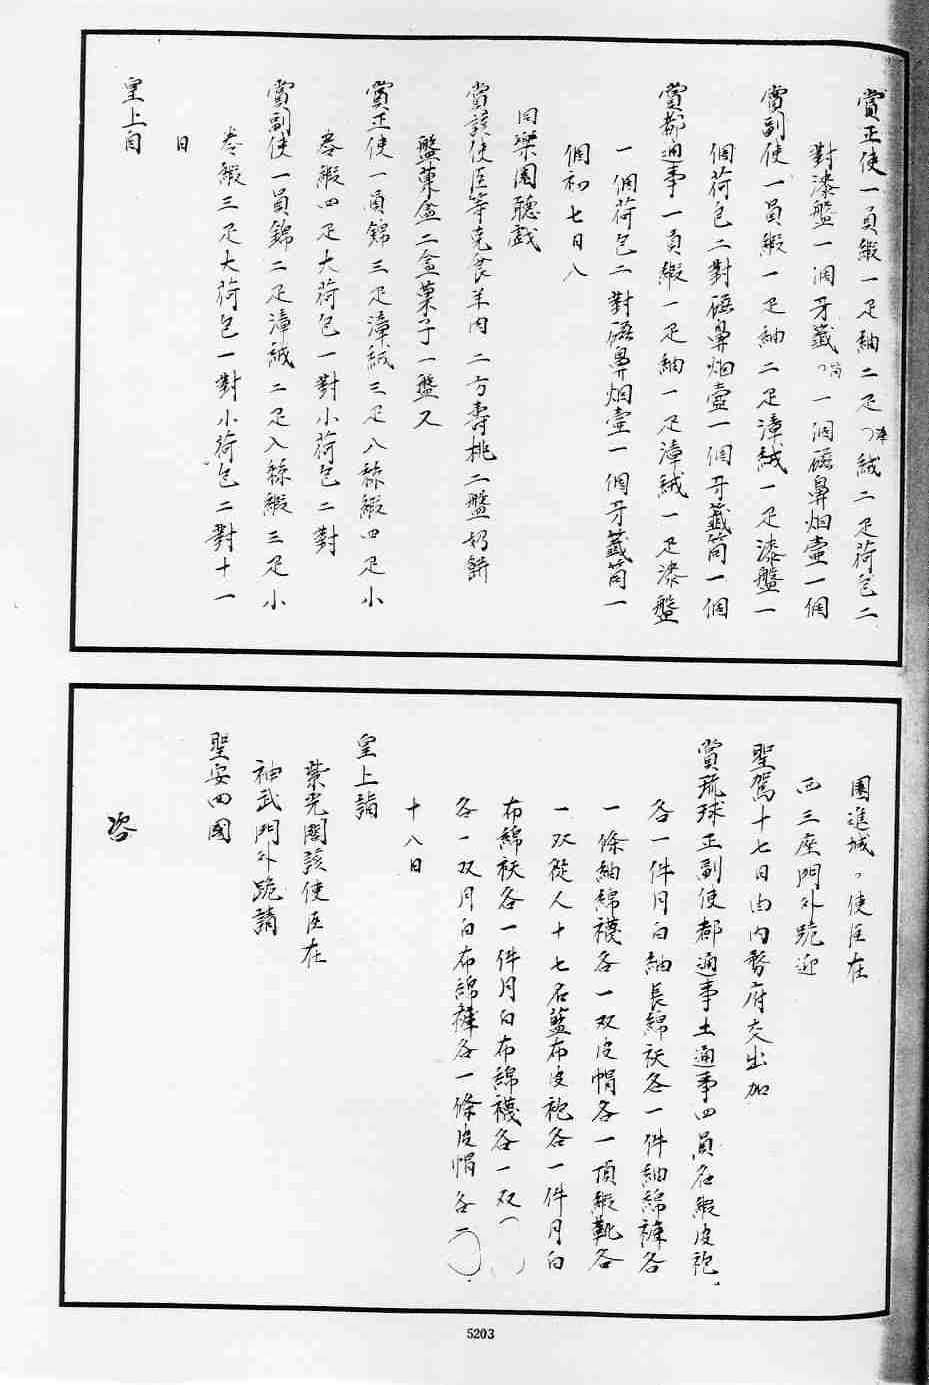 賞正使一員緞一疋紬二疋漳絨二疋荷包二
對漆盤一個牙籤筒一個磁鼻烟壷一個
賞副使一員緞一疋紬二疋漳絨一疋漆盤一
個荷包二對磁鼻烟壷一個牙籤筒一個
賞都通事一員緞一疋紬一疋漳絨一疋漆盤
一個荷包二對磁鼻烟壷一個牙籤筒一
個初七日入
同樂園聽戯
賞該使臣等克食羊肉二方壽桃二盤奶餅
盤菓盒二盒菓子一盤又
賞正使一員錦三疋漳絨三疋八絲緞四疋小
卷緞四疋大荷包一對小荷包二對
賞副使一員錦二疋漳絨二疋八絲緞三疋小
卷緞三疋大荷包一對小荷包二對十一
日
皇上自
園進城使臣在
西三座門外跪迎
聖駕十七日由内務府交出加
賞琉球正副使都通事土通事四員名緞皮袍
各一件月白紬長綿袄各一件紬綿褲各
一條紬綿襪各一双皮帽各一頂緞靴各
一双從人十七名藍布皮袍各一件月白
布綿袄各一件月白布綿襪各一双
各一双月白布綿褲各一條皮帽各一
十八日
皇上詣
紫光閣該使臣在
神武門外跪請
聖安回國
咨
5203